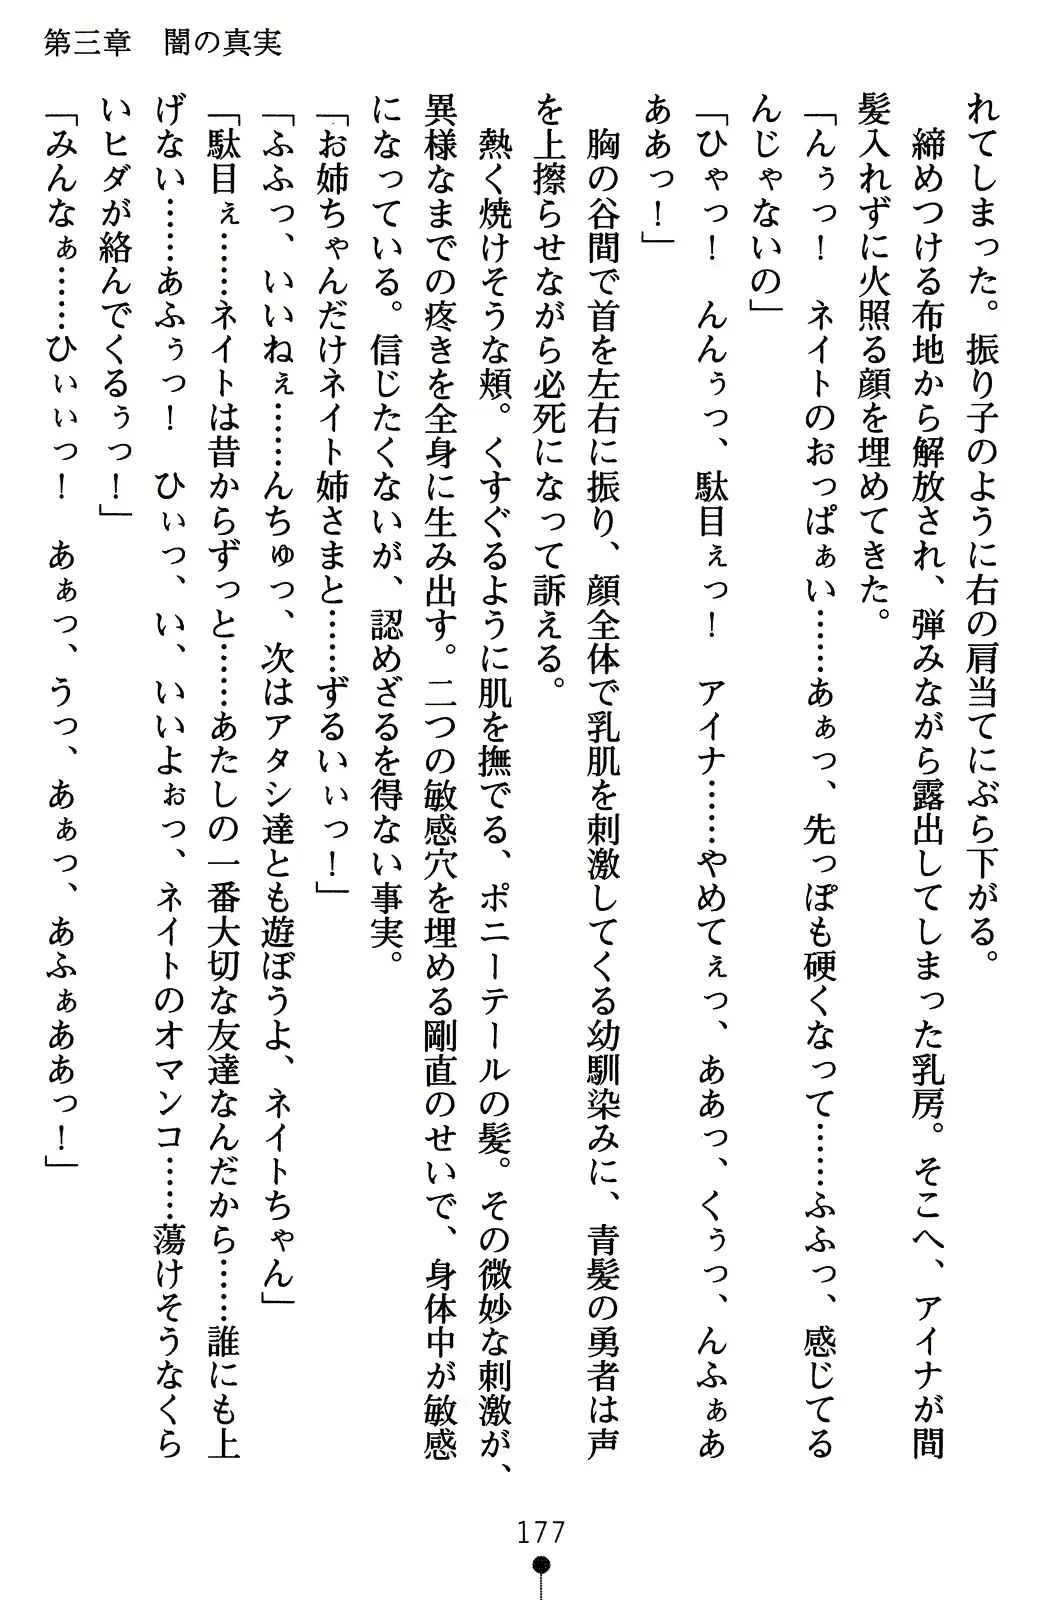 第三章　闇の真実
れてしまった。振り子のように右の肩当てにぶら下がる。
　締めつける布地から解放され、弾みながら露出してしまった乳房。そこへ、アイナが間
髪入れずに火照る顔を埋めてきた。
「んぅっ！　ネイトのおっぱぁい……あぁっ、先っぽも硬くなって……ふふっ、感じてる
んじゃないの」
「ひゃっ！　んんぅっ、駄目ぇっ！　アイナ……やめてぇっ、ああっ、くぅっ、んふぁあ
ああっ！」
　胸の谷間で首を左右に振り、顔全体で乳肌を刺激してくる幼馴染みに、青髪の勇者は声
を上擦らせながら必死になって訴える。
　熱く焼けそうな頬。くすぐるように肌を撫でる、ポニーテールの髪。その微妙な刺激が、
異様なまでの疼きを全身に生み出す。二つの敏感穴を埋める剛直のせいで、身体中が敏感
になっている。信じたくないが、認めざるを得ない事実。
「お姉ちゃんだけネイト姉さまと……ずるいぃっ！」
「ふふっ、いいねぇ……んちゅっ、次はアタシ達とも遊ぼうよ、ネイトちゃん」
「駄目ぇ……ネイトは昔からずっと……あたしの一番大切な友達なんだから……誰にも上
げない……あふぅっ！　ひぃっ、い、いいよぉっ、ネイトのオマンコ……蕩けそうなくら
いヒダが絡んでくるぅっ！」
「みんなぁ……ひぃぃっ！　あぁっ、うっ、あぁっ、あふぁああっ！」
177